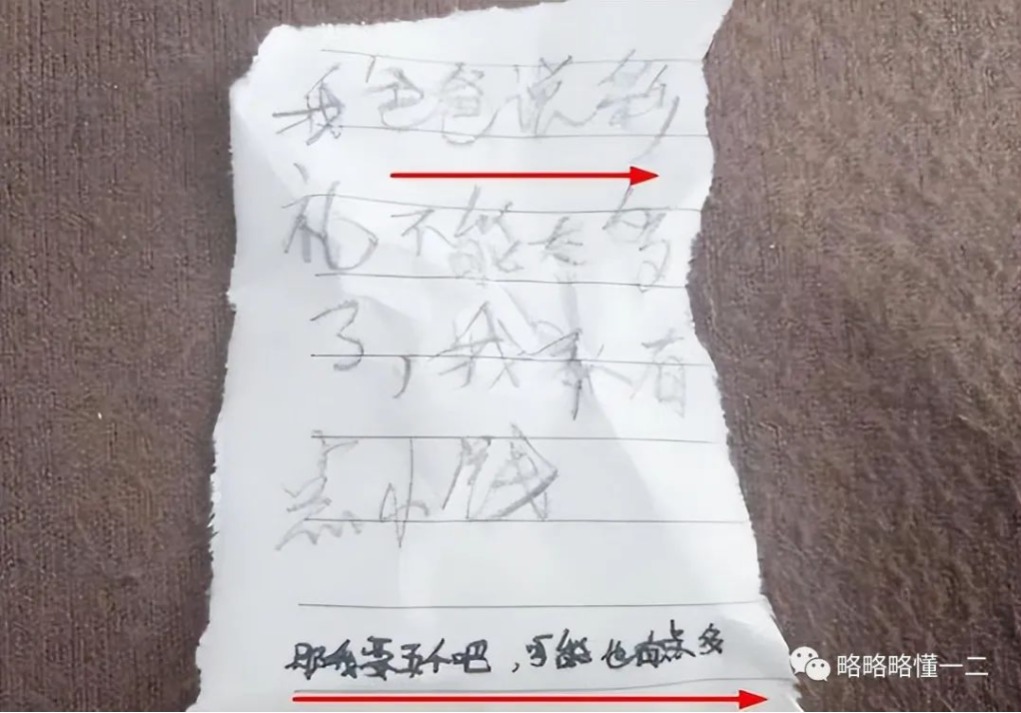 我爸爸说彩
礼不能太多
了，我家有
点小钱
那我要五个吧，可能也有点多
略略略懂一二